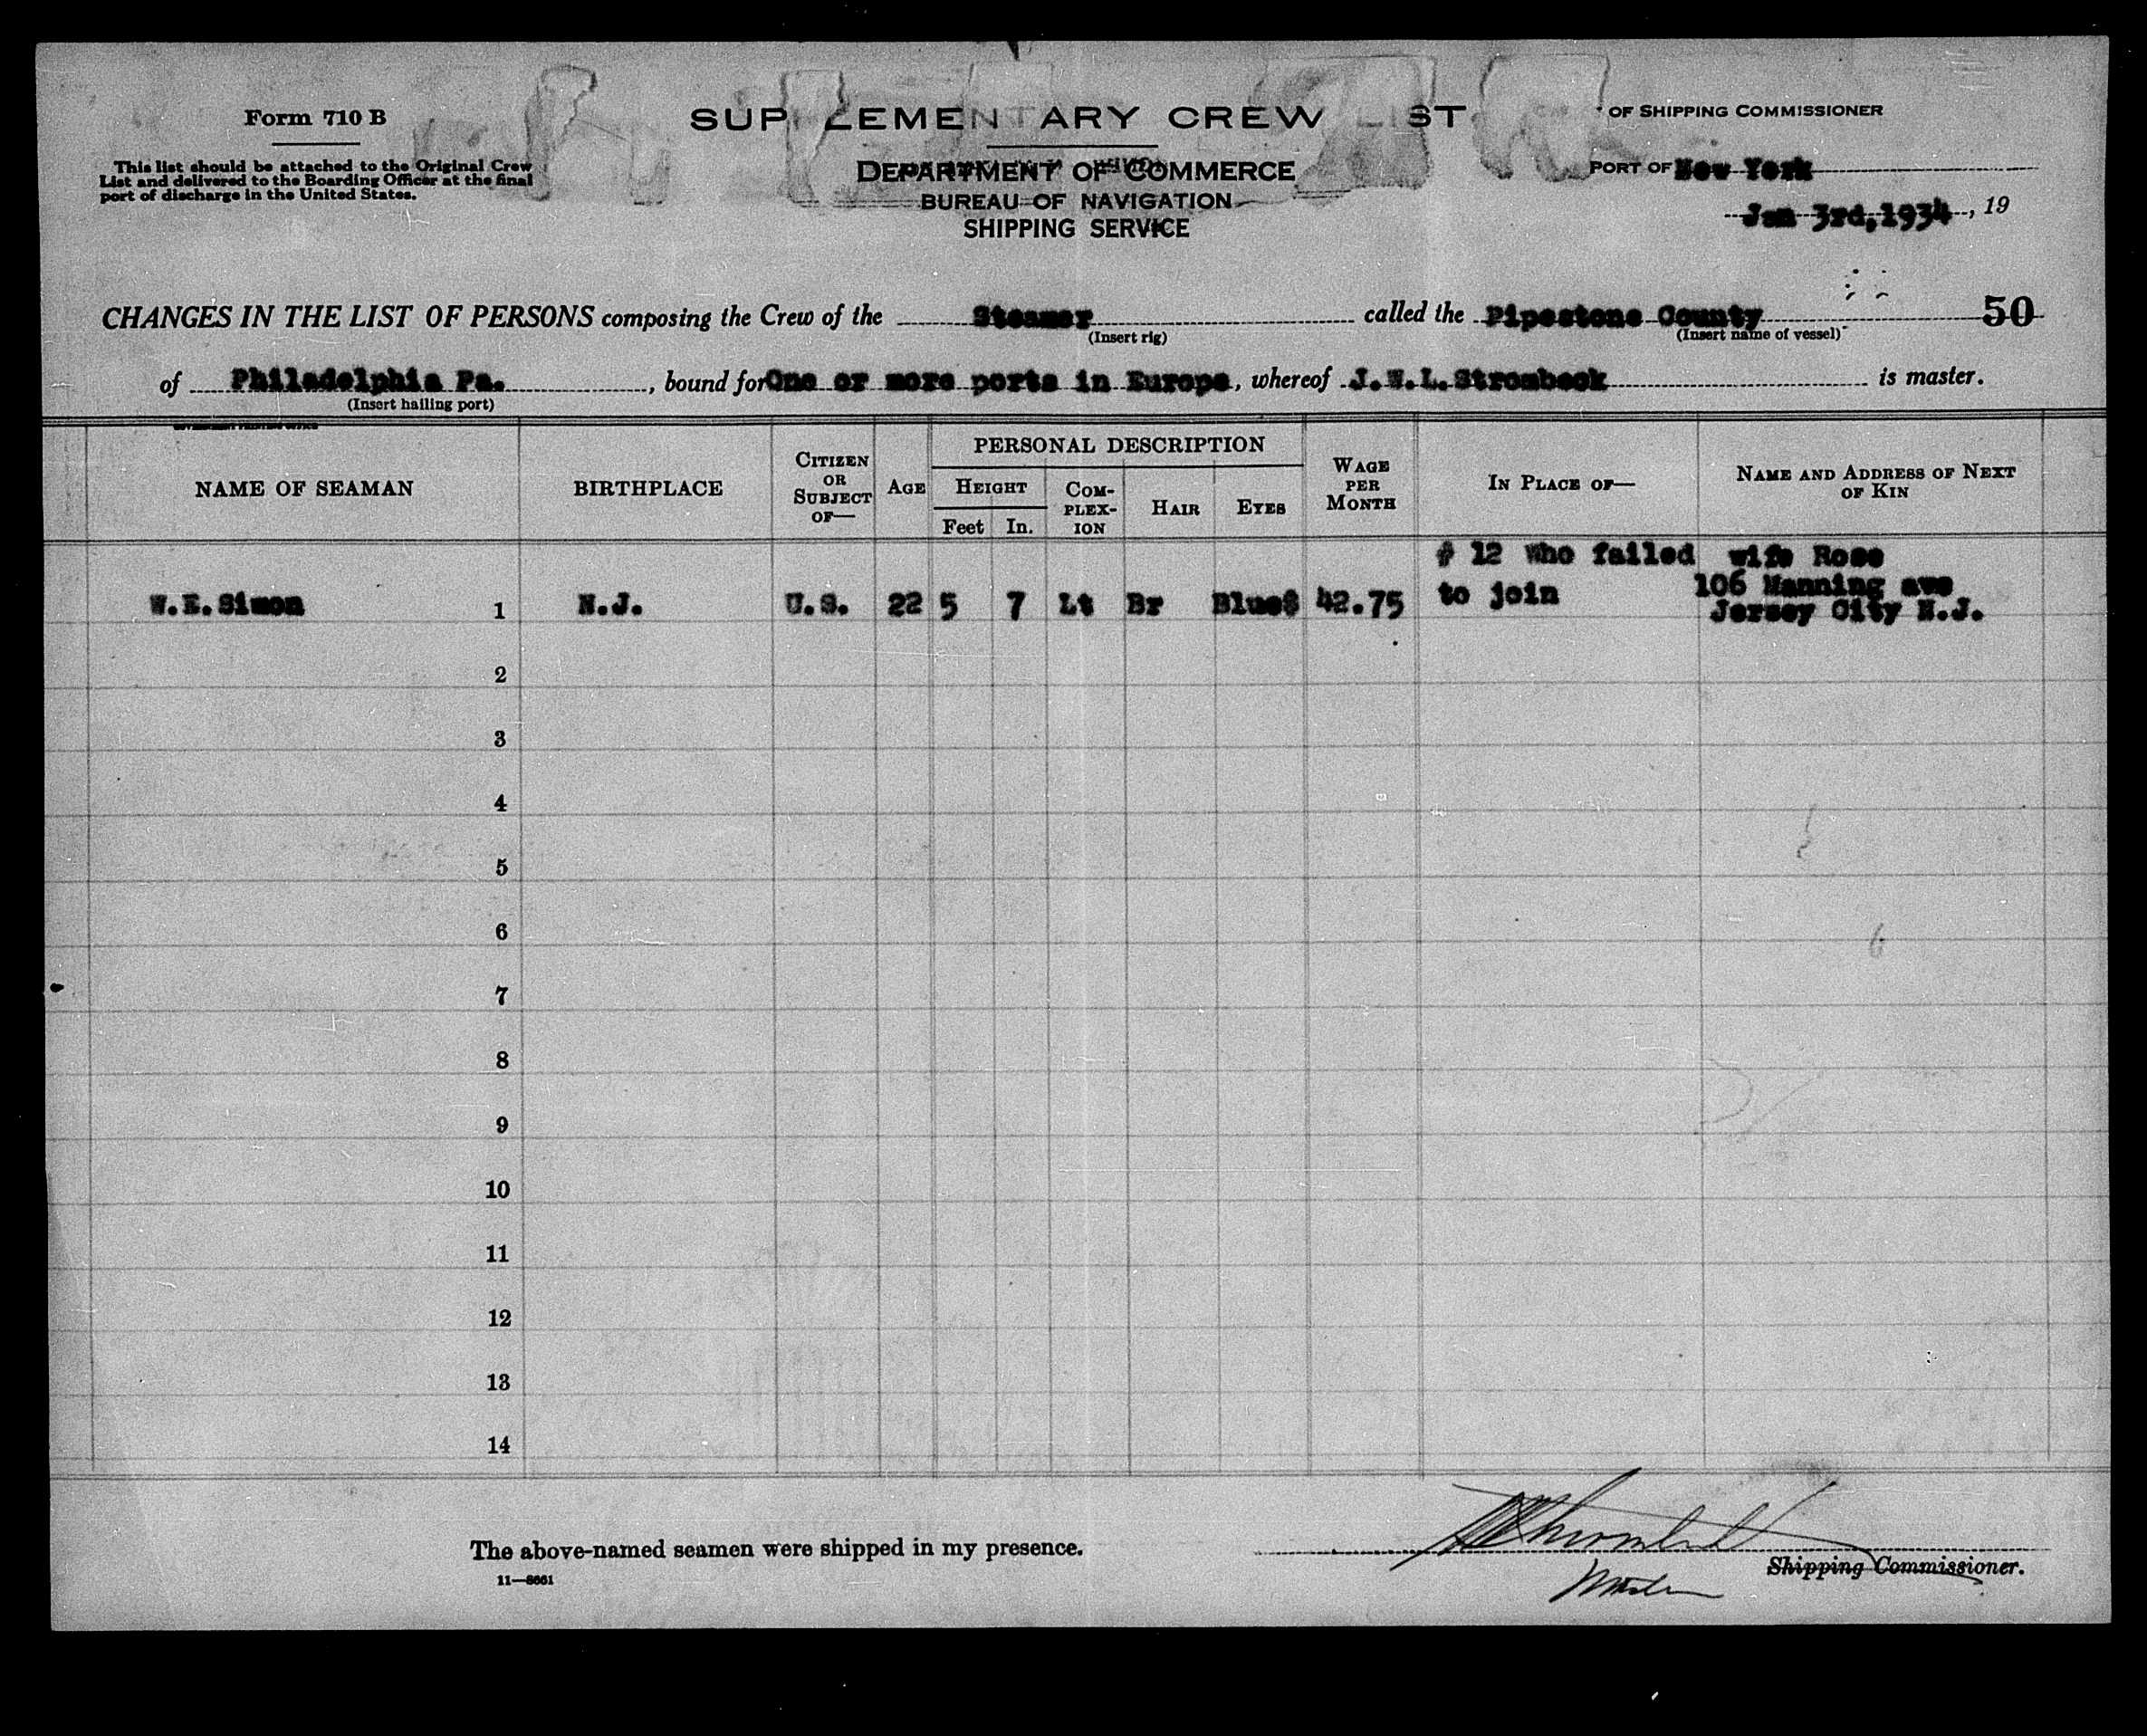 Form 710 B
This list should be attached to the Original Crew
List and delivered to the Boarding Officer at the final
port of discharge in the United States.
SUPPLEMENTARY CREW LIST
DEPARTMENT OF COMMERCE
BUREAU OF NAVIGATION
SHIPPING SERVICE
OF SHIPPING COMMISSIONER
PORT OF New York
Jan 3rd, 1934, 19
CHANGES IN THE LIST OF PERSONS composing the Crew of the Steamer called the Pipestone County 50
(Insert rig) (Insert name of vessel)
of Philadelphia Pa. , bound for One or more ports in Europe, whereof J.W.L. Strombeck is master.
(Insert hailing port)
GOVERNMENT PRINTING OFFICE
NAME OF SEAMAN BIRTHPLACE CITIZEN OR SUBJECT OF— AGE PERSONAL DESCRIPTION WAGE PER MONTH IN PLACE OF— NAME AND ADDRESS OF NEXT OF KIN
HEIGHT COMPLEXION HAIR EYES
Feet In.
# 12 Who failed wife Rose
W.E. Simon 1 N.J. U.S. 22 5 7 Lt Br Blue$ 42.75 to join 106 Manning ave
Jersey City N.J.
2
3
4
5
6
7
8
9
10
11
12
13
14
The above-named seamen were shipped in my presence.
Shipping Commissioner.
11—8661
Master